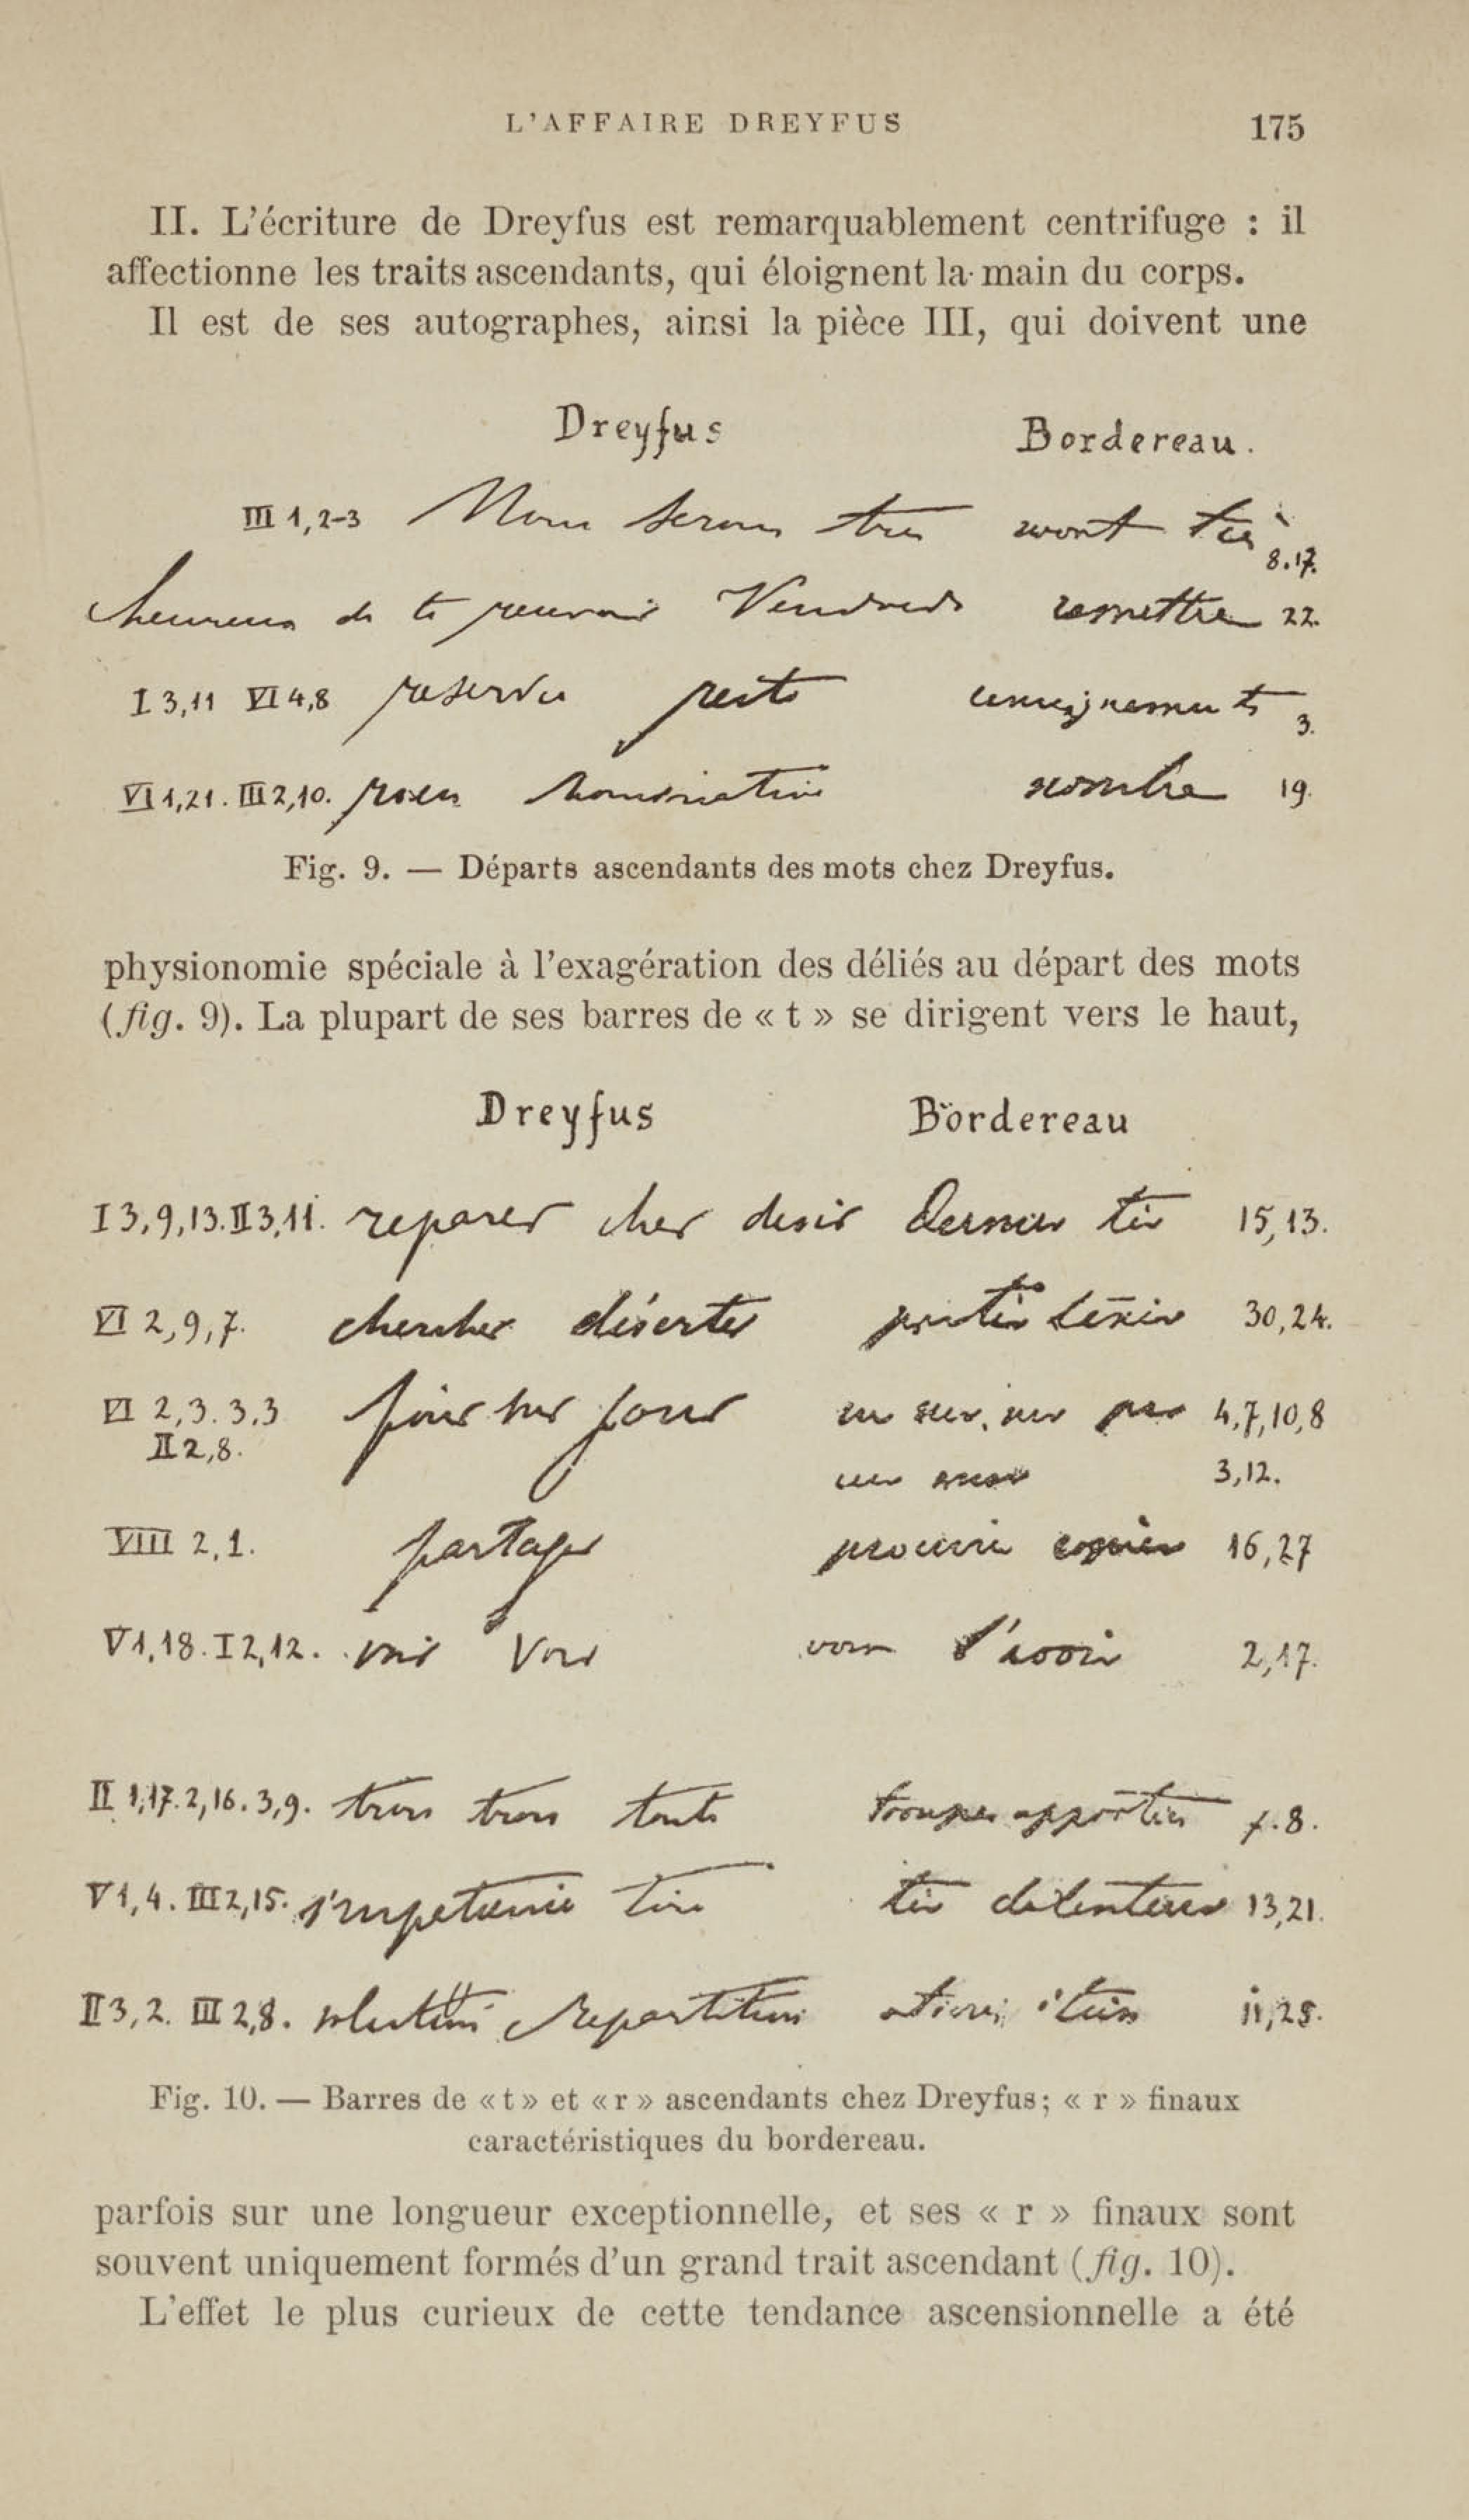 L'AFFAIRE DREYFUS 175
II. L'écriture de Dreyfus est remarquablement centrifuge : il
affectionne les traits ascendants, qui éloignent la main du corps.
Il est de ses autographes, ainsi la pièce III, qui doivent une
Dreyfus Bordereau.
III 1,2-3 Nous serons très sont très 8.17.
heureux de te revoir Vendredi remettre 22.
I 3,11 VI 4,8 reste 3.
VI 1,21. III 2,10. nomination nombre 19.
Fig. 9. — Départs ascendants des mots chez Dreyfus.
physionomie spéciale à l'exagération des déliés au départ des mots
(fig. 9). La plupart de ses barres de « t » se dirigent vers le haut,
Dreyfus Bordereau
I 3,9,13. II 3,11. reparer cher desir dernier tir 15,13.
VI 2,9,7. chercher déserter partir tenir 30,24.
VI 2,3. 3,3 jour sur jour sur, sur par 4,7,10,8
II 2,8. 3,12.
VIII 2,1. partager procurer copier 16,27
V 1,18. I 2,12. voir vous l'avoir 2,17.
II 1,17. 2,16. 3,9. trois toute troupes apportées 7.8.
V 1,4. III 2,15. tir détenteur 13,21.
II 3,2. III 2,8. solution Repartition 11,25.
Fig. 10. — Barres de « t » et « r » ascendants chez Dreyfus ; « r » finaux
caractéristiques du bordereau.
parfois sur une longueur exceptionnelle, et ses « r » finaux sont
souvent uniquement formés d'un grand trait ascendant (fig. 10).
L'effet le plus curieux de cette tendance ascensionnelle a été